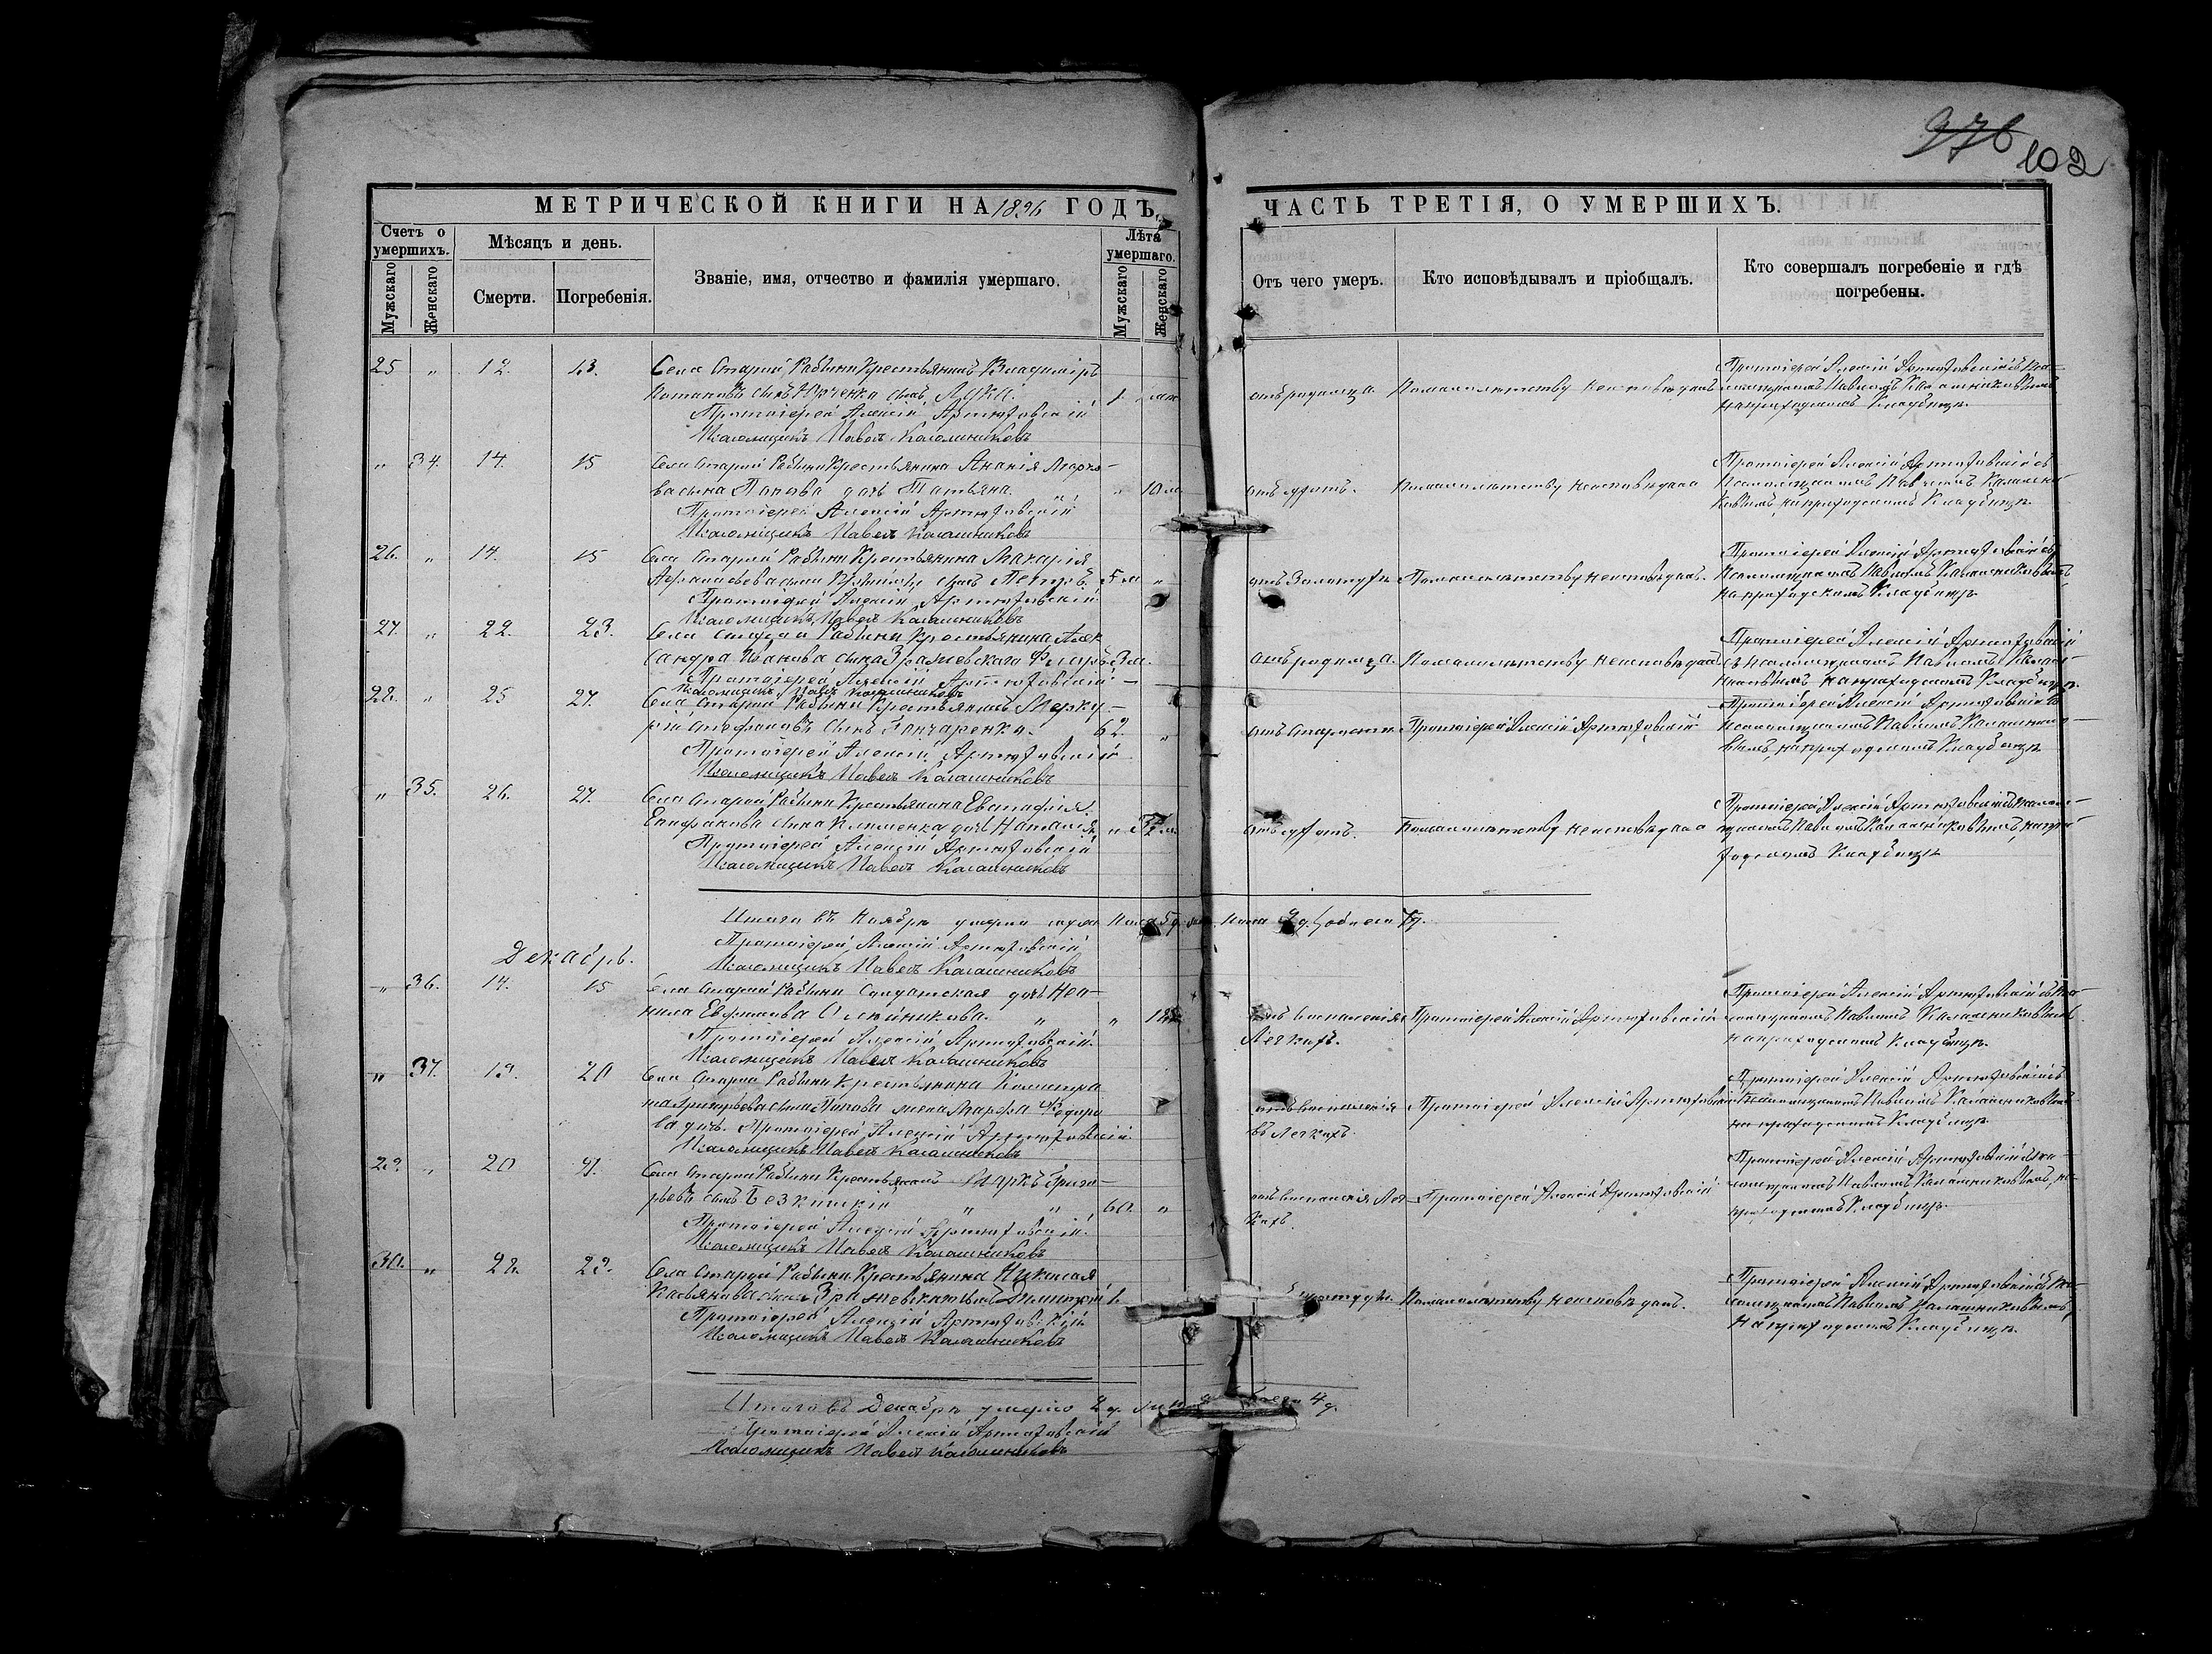 976
102
МЕТРИЧЕСКОЙ КНИГИ НА 1896 ГОДЪ,
ЧАСТЬ ТРЕТІЯ, О УМЕРШИХЪ.
Счетъ о умершихъ.
Мужскаго
Женскаго
Мѣсяцъ и день.
Смерти.
Погребенія.
Званіе, имя, отчество и фамилія умершаго.
Лѣта умершаго.
Мужскаго
Женскаго
Отъ чего умеръ.
Кто исповѣдывалъ и пріобщалъ.
Кто совершалъ погребеніе и гдѣ погребены.
25 " 12. 13. Села Старой Рябыни Крестьянинъ Владиміръ
сынъ Юрченко сынъ Лука. 1
Протоіерей Алексій Артюховскій
Псаломщикъ Павелъ Калашниковъ
отъ родимца Помалолѣтству неисповѣданъ
Протоіерей Алексій Артюховскій съ Пса-
ломщикомъ Павломъ Калашниковымъ
на приходскомъ Кладбищѣ.
" 34. 14. 15 Села Старой Рябыни Крестьянина Ананія Марко-
ва сына Попова дочь Татьяна. " 10 м.
Протоіерей Алексій Артюховскій
Псаломщикъ Павелъ Калашниковъ
Помалолѣтству неисповѣдана
Протоіерей Алексій Артюховскій съ
Псаломщикомъ Павломъ Калашни-
ковымъ, на приходскомъ Кладбищѣ.
26. " 14. 15 Села Старой Рябыни Крестьянина Макарія
Афанасьева сына сынъ Петръ. 5 м "
Протоіерей Алексій Артюховскій
Псаломщикъ Павелъ Калашниковъ
отъ Золотухи Помалолѣтству неисповѣданъ.
Протоіерей Алексій Артюховскій съ
Псаломщикомъ Павломъ Калашниковымъ
на приходскомъ Кладбищѣ
27. " 22. 23. Села Старой Рябыни Крестьянина Алек
сандра Иванова сына Зражевскаго 3 м.
Протоіерей Алексій Артюховскій
Псаломщикъ Павелъ Калашниковъ
отъ родимца. Помалолѣтству неисповѣданъ
Протоіерей Алексій Артюховскій
съ Псаломщикомъ Павломъ Калаш-
никовымъ на приходскомъ Кладбищѣ.
28. " 25 27. Села Старой Рябыни Крестьянинъ Мерку-
рій Стефановъ сынъ Гончаренко. 62. "
Протоіерей Алексій Артюховскій
Псаломщикъ Павелъ Калашниковъ
отъ старости Протоіерей Алексій Артюховскій
Протоіерей Алексій Артюховскій съ
Псаломщикомъ Павломъ Калашнико-
вымъ, на приходскомъ Кладбищѣ
" 35. 26. 27. Села Старой Рябыни Крестьянина
сына Клименка дочь Наталія "
Протоіерей Алексій Артюховскій
Псаломщикъ Павелъ Калашниковъ
Помалолѣтству неисповѣдана
Протоіерей Алексій Артюховскій съ Псалом-
щикомъ Павломъ Калашниковымъ, на при-
ходскомъ Кладбищѣ
Итого въ Ноябрѣ умерло обоего 7 д.
Протоіерей Алексій Артюховскій
Псаломщикъ Павелъ Калашниковъ
Декабрь.
" 36. 14. 15 Села Старой Рябыни Солдатская дочь Нео-
нила Олейникова. " "
Протоіерей Алексій Артюховскій
Псаломщикъ Павелъ Калашниковъ
отъ воспаленія Легкихъ.
Протоіерей Алексій Артюховскій
Протоіерей Алексій Артюховскій съ Пса-
ломщикомъ Павломъ Калашниковымъ
на приходскомъ Кладбищѣ.
" 37. 19. 20 Села Старой Рябыни Крестьянина
Григорьева сына Попова жена Марфа Федоро
ва дочь. Протоіерей Алексій Артюховскій
Псаломщикъ Павелъ Калашниковъ
отъ воспаленія
въ Легкихъ.
Протоіерей Алексій Артюховскій
Протоіерей Алексій Артюховскій съ
Псаломщикомъ Павломъ Калашниковымъ
на приходскомъ Кладбищѣ.
29. " 20 21. Села Старой Рябыни Крестьянинъ Маркъ Григо-
рьевъ сынъ " " 60. "
Протоіерей Алексій Артюховскій
Псаломщикъ Павелъ Калашниковъ
отъ воспаленія Лег-
кихъ.
Протоіерей Алексій Артюховскій
Протоіерей Алексій Артюховскій съ Пса-
ломщикомъ Павломъ Калашниковымъ, на
приходскомъ Кладбищѣ.
30. " 28. 29. Села Старой Рябыни Крестьянина Николая
сына Зражевскаго сынъ Димитрій 1.
Протоіерей Алексій Артюховскій
Псаломщикъ Павелъ Калашниковъ
Помалолѣтству неисповѣданъ.
Протоіерей Алексій Артюховскій съ Пса-
ломщикомъ Павломъ Калашниковымъ,
на приходскомъ Кладбищѣ.
Итого въ Декабрѣ умерло 4 д.
Протоіерей Алексій Артюховскій
Псаломщикъ Павелъ Калашниковъ